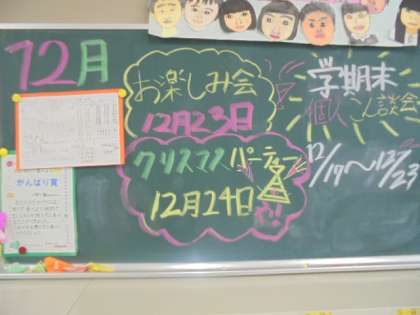 12月
お楽しみ会
12月23日
クリスマスパーティー
12月24日!!
学期末
個人こん談会
12/17〜12/23
がんばり賞